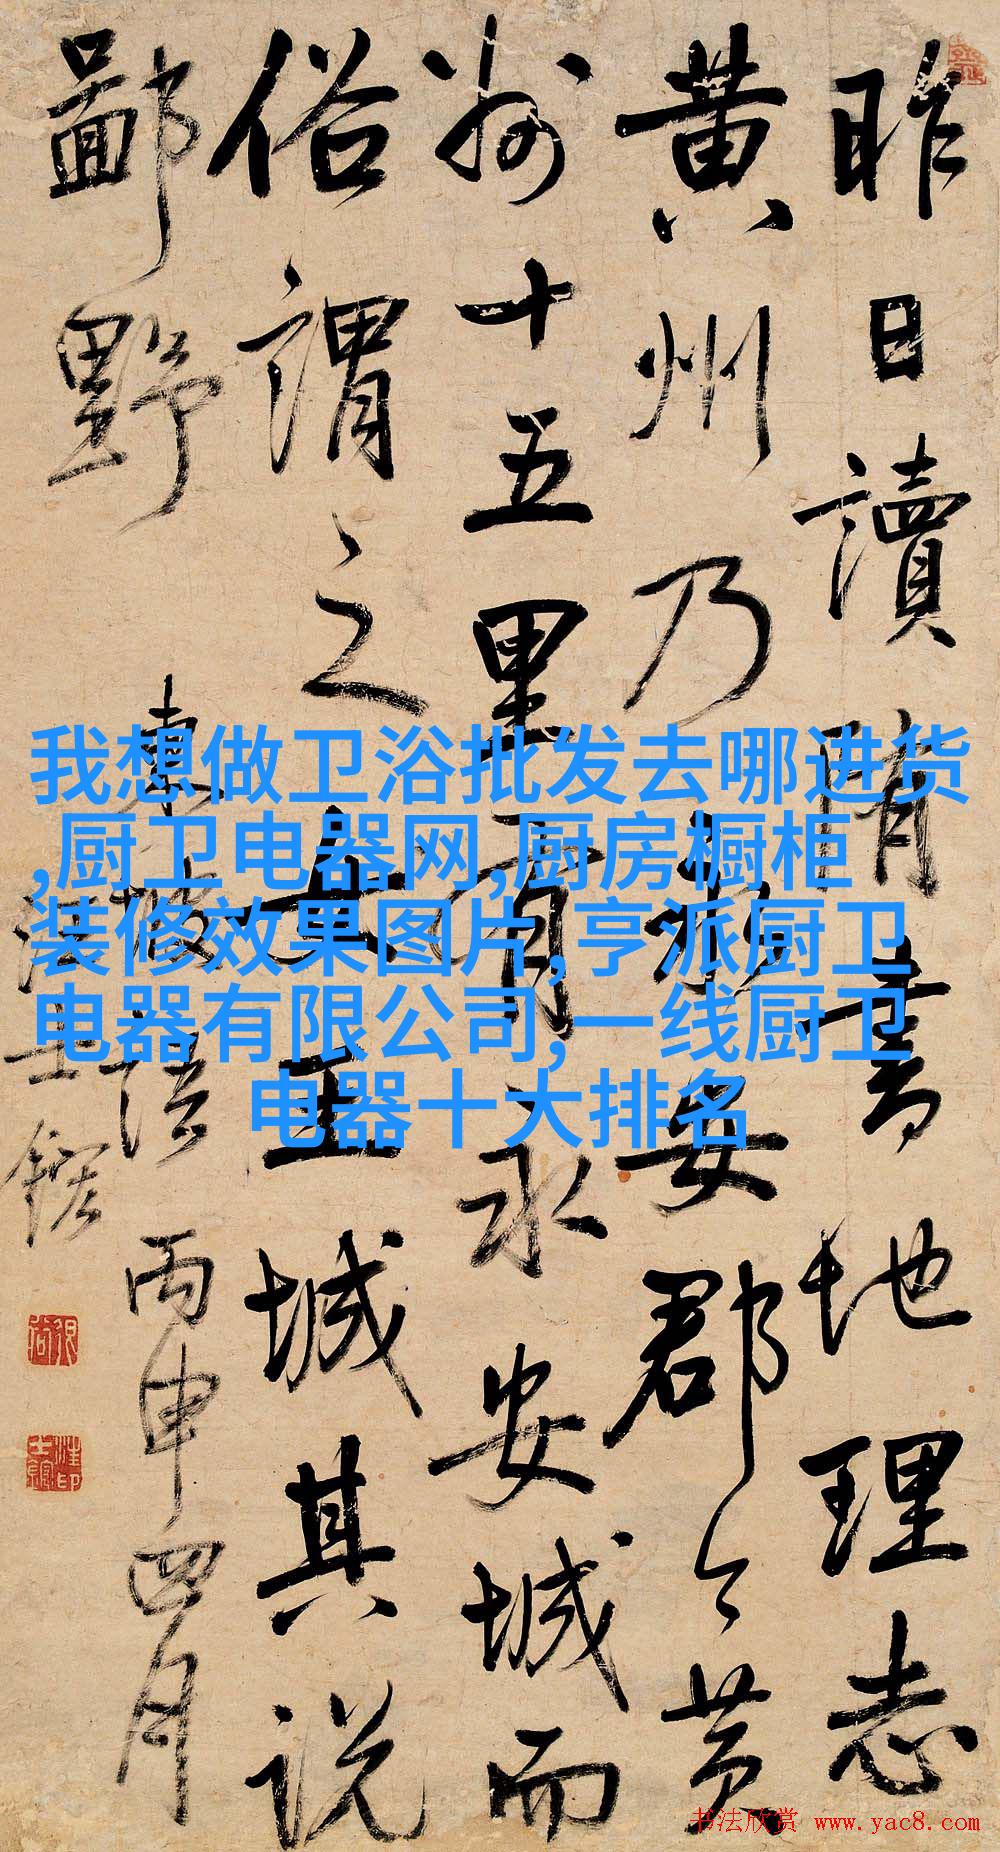 昨日讀隋書地理志
黄州乃永安郡今黄
州十五里有永安城而
俗謂之女王城其説
鄙野
東坡語丙申四月
汪士鋐
我想做卫浴批发去哪进货
,厨卫电器网,厨房橱柜
装修效果图片,亨派厨卫
电器有限公司,一线厨卫
电器十大排名
书法欣赏 www.yac8.com